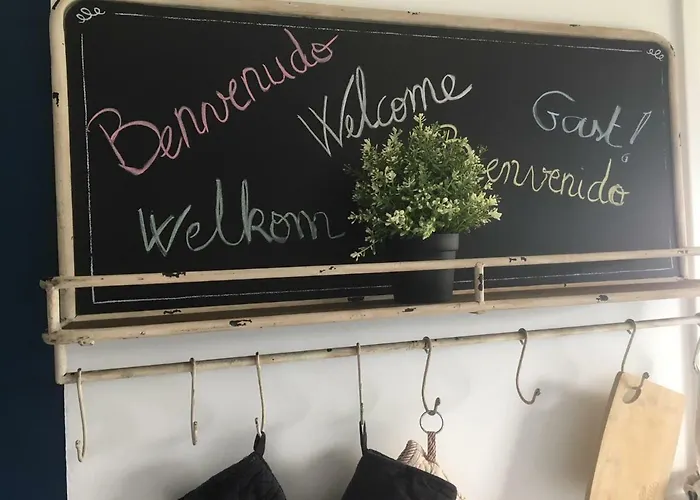 Benvenudo
Welcome
Gast!
Welkom
Bienvenido